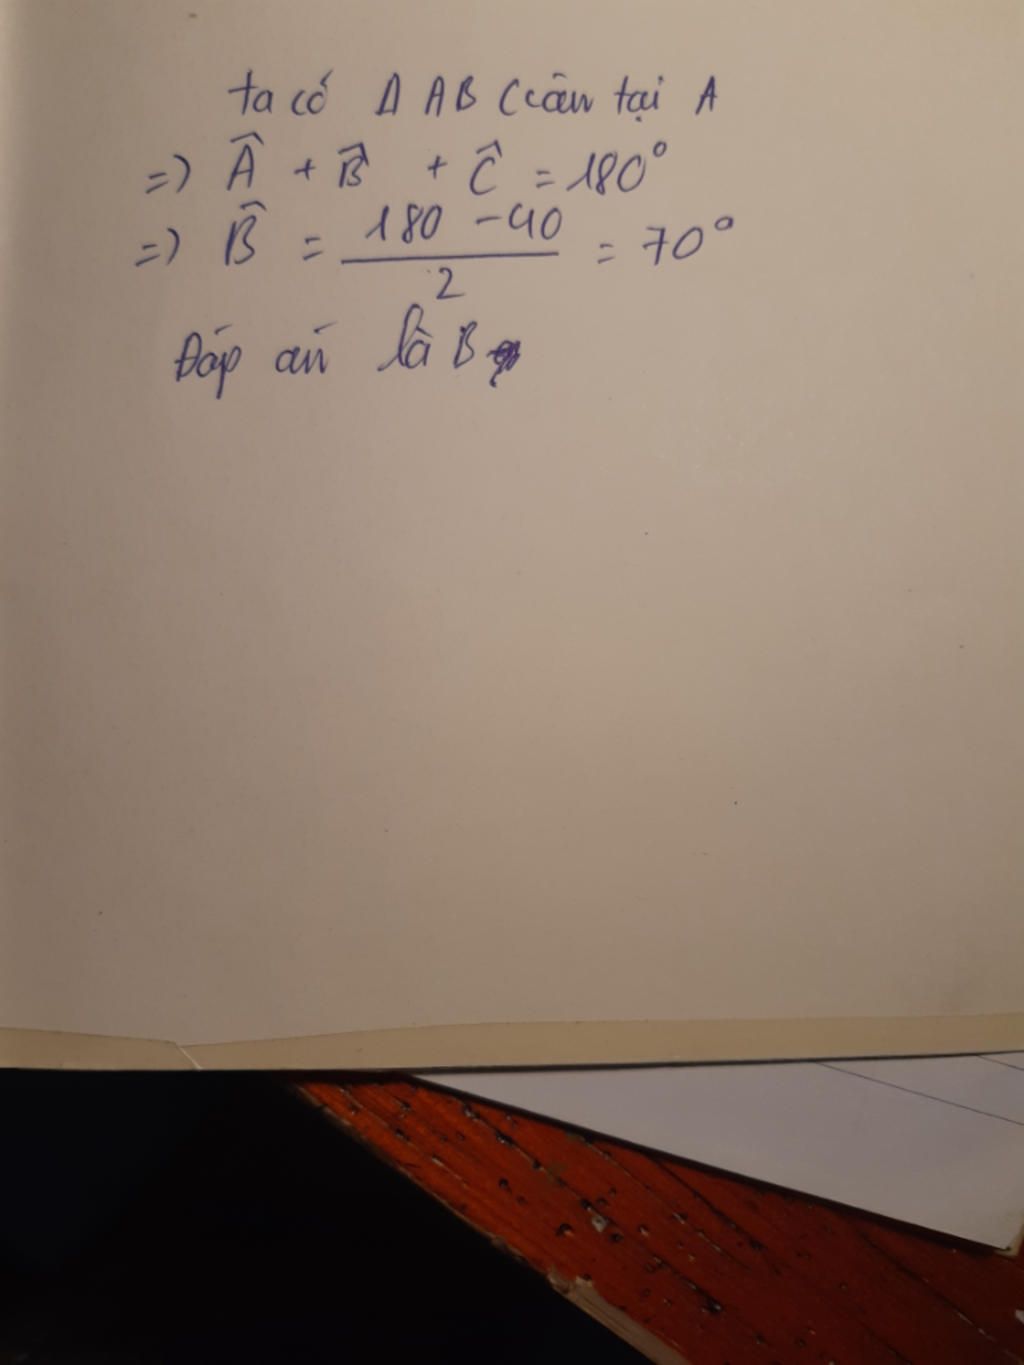 ta có Δ ABC cân tại A
=> Â + B̂ + Ĉ = 180°
=> B̂ = (180 - 40) / 2 = 70°
Đáp án là B